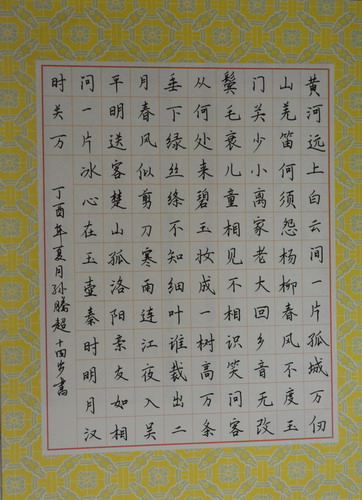 黄河远上白云间一片孤城万仞
山羌笛何须怨杨柳春风不度玉
门关少小离家老大回乡音无改
鬓毛衰儿童相见不相识笑问客
从何处来碧玉妆成一树高万条
垂下绿丝绦不知细叶谁裁出二
月春风似剪刀寒雨连江夜入吴
平明送客楚山孤洛阳亲友如相
问一片冰心在玉壶秦时明月汉
时关万
丁酉年夏月孙腾超十四岁书